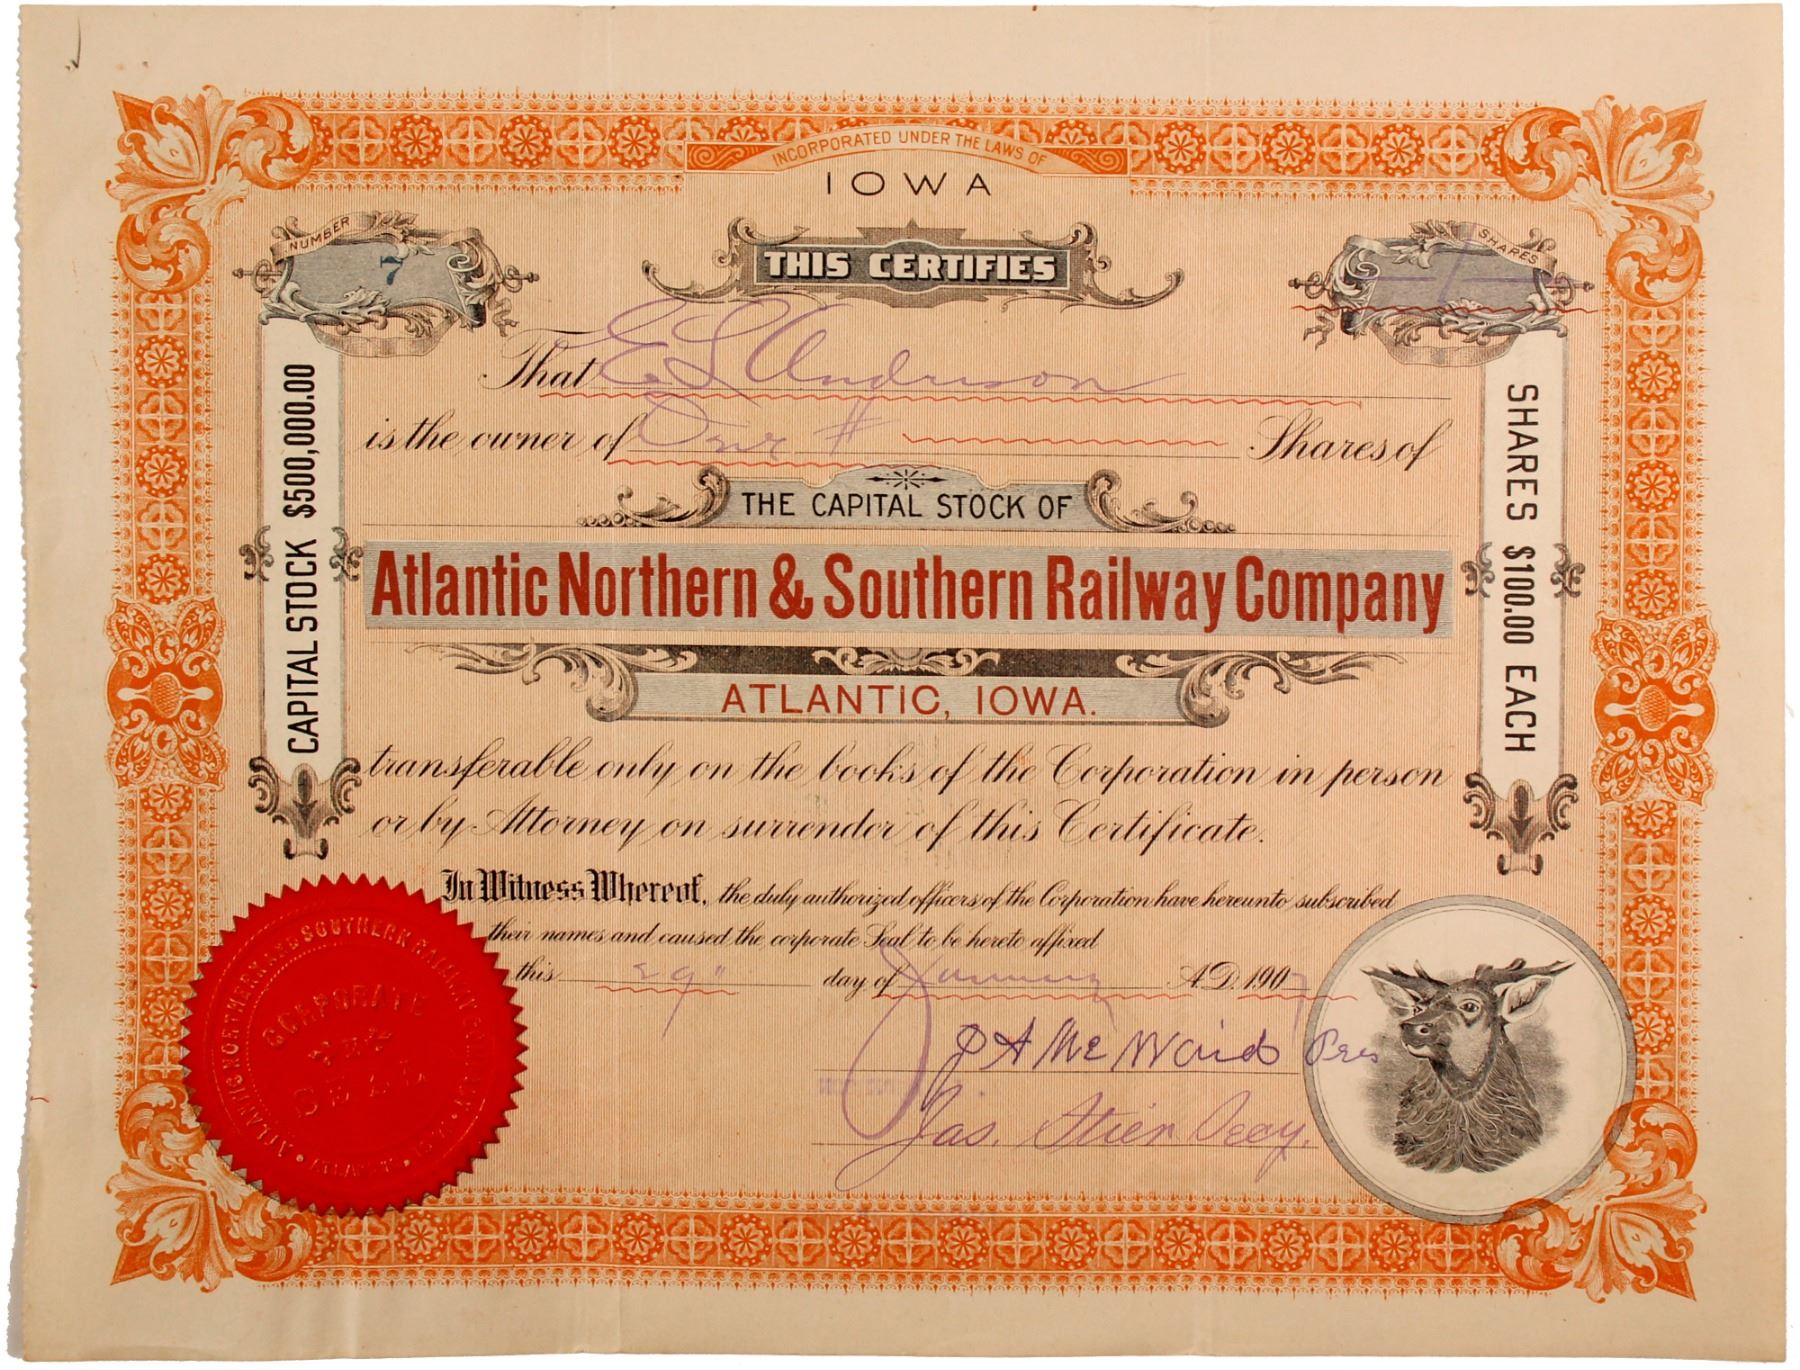 INCORPORATED UNDER THE LAWS OF
IOWA
NUMBER
7
THIS CERTIFIES
SHARES
1
That E L Anderson
is the owner of One # Shares of
THE CAPITAL STOCK OF
Atlantic Northern & Southern Railway Company
ATLANTIC, IOWA.
CAPITAL STOCK $500,000.00
SHARES $100.00 EACH
transferable only on the books of the Corporation in person
or by Attorney on surrender of this Certificate.
In Witness Whereof, the duly authorized officers of the Corporation have hereunto subscribed
their names and caused the corporate Seal to be hereto affixed
this 29" day of January A.D. 1907
Pres
Jas. Stier Secy.
ATLANTIC NORTHERN AND SOUTHERN RAILWAY COMPANY
SEAL